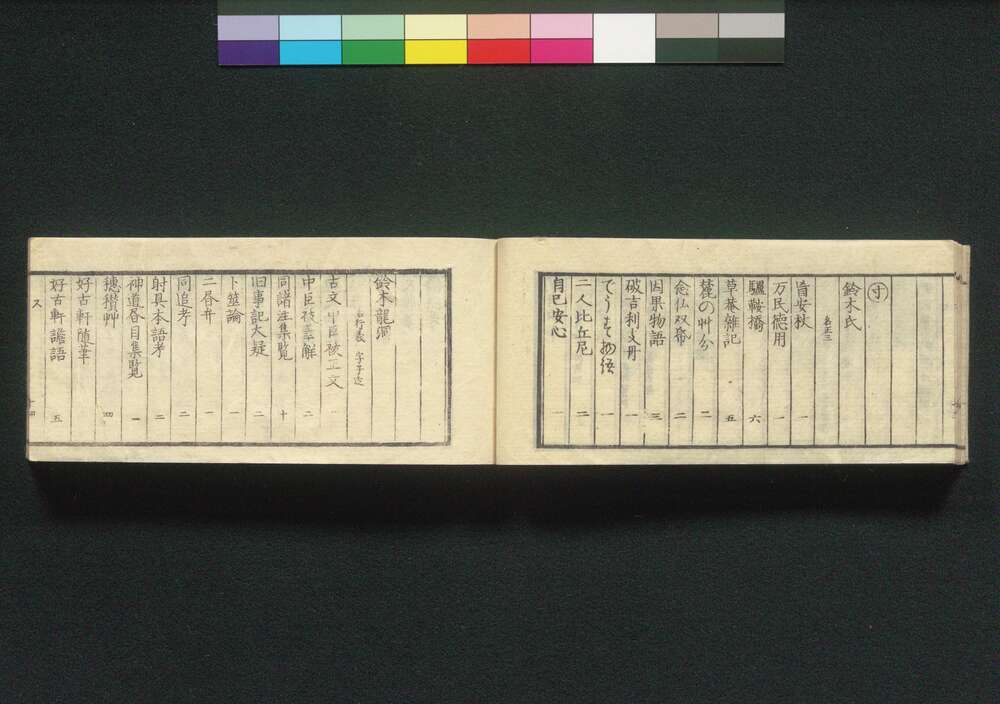 寸
鈴木氏 名正三
盲安杖 一
万民徳用 一
驢鞍橋 六
草菴雑記 五
麓の艸分 二
念仏双帋 二
因果物語 三
破吉利支丹 一
でうす物語 一
二人比丘尼 二
自己安心 一
鈴木龍洞 名行義
古文中臣祓正文 一
中臣祓纂解 二
同諸注集覧 十
旧事記大疑 二
卜筮論 一
二㫪弁 一
同追考 二
射具本語考 二
神道㫪目集覧 一
穂積艸 四
好古軒随筆
好古軒譫語 五
ス